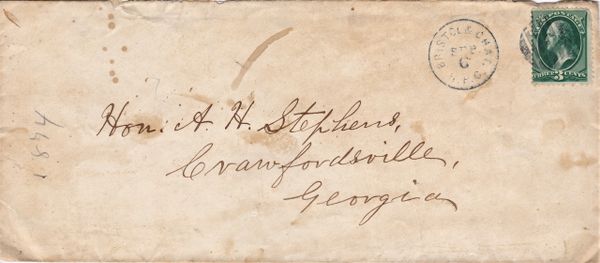 BRISTOL & CHAT.
SEP
6
R.P.O.
U.S. POSTAGE
THREE 3 CENTS
1874
Hon. A. H. Stephens,
Crawfordsville,
Georgia